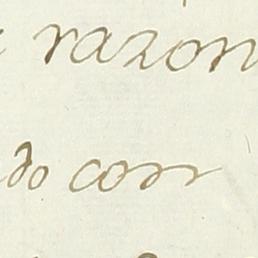 razon
do con